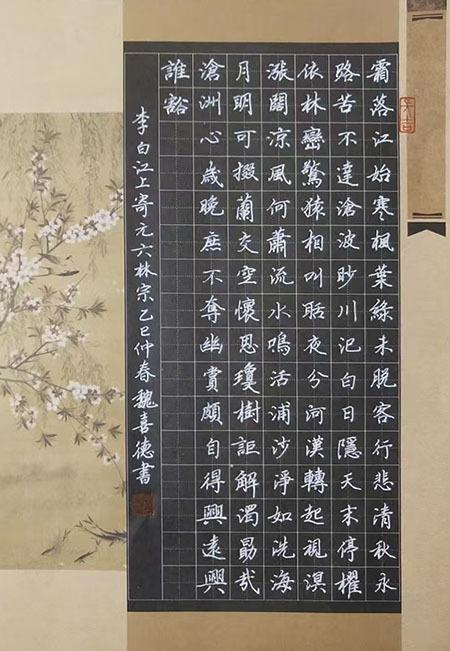 霜落江始寒楓葉綠未脫客行悲清秋永
路苦不達滄波眇川汜白日隱天末停櫂
依林巒驚猿相叫聒夜兮河漢轉起視溟
漲闊涼風何蕭流水鳴活浦沙淨如洗海
月明可掇蘭交空懷思瓊樹詎解濁勗哉
滄洲心歲晚庶不奪幽賞頗自得興遠興
誰豁
李白江上寄元六林宗乙巳仲春魏喜德書